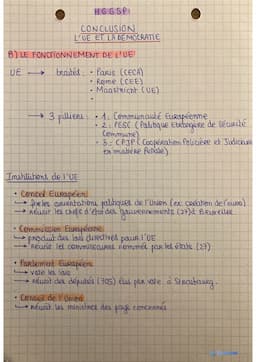 HGGSP:
CONCLUSION
L'UE ET LA DÉMOCRATIE
B) LE FONCTIONNEMENT DE L'UE
UE → traités : • Paris (CECA)
• Rome (CEE)
• Maastricht (UE)
•
→ 3 pilliers : • 1. Communauté Européenne
• 2. PESC (Politique Etrangère de Sécurité
Commune)
• 3. CPJP (Coopération Policière et Judiciaire
en matière Pénale).
Institutions de l'UE
• Conseil Européen:
→ fixe les orientations politiques de l'Union (ex: création de l'euro).
→ réunit les chefs d'état des gouvernements (27) à Bruxelles.
• Commission Européenne:
→ produit des lois directives pour l'UE
→ réunit les commissaires nommés par les états (27)
• Parlement Européen
→ vote les lois
→ réunit des députés (705) élus par vote à Strasbourg.
• Conseil de l'Union
→ réunit les ministres des pays concernés